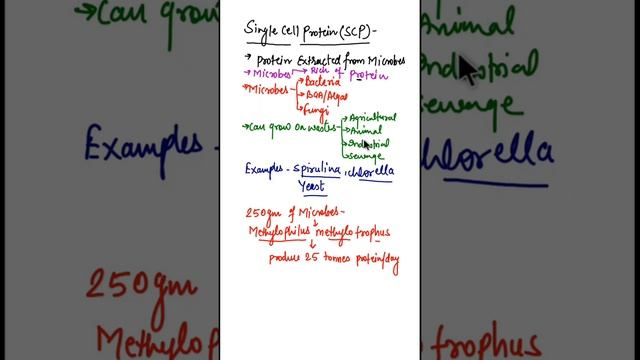 Single Cell Protein (SCP) -
→ Protein Extracted from Microbes
→ Microbes → Rich of Protein
→ Microbes - Bacteria
BGA/Algae
Fungi
→ Can grow on wastes - Agricultural
Animal
Industrial
Sewage
Examples - Spirulina, chlorella
Yeast
250gm of Microbes -
↓
Methylophilus methylotrophus
↓
produce 25 tonnes protein/day
→Can grow
Examples -
250gm
Methylop
Animal
Industrial
Sewage
chlorella
frophus